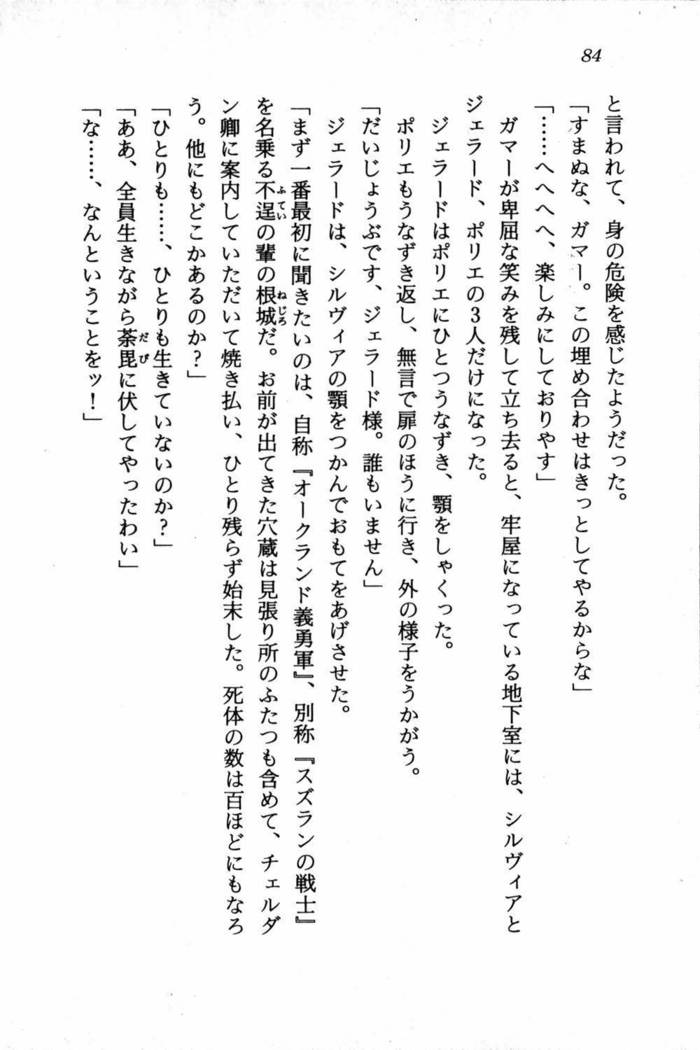 84
と言われて、身の危険を感じたようだった。
「すまぬな、ガマー。この埋め合わせはきっとしてやるからな」
「……へへへへ、楽しみにしておりやす」
ガマーが卑屈な笑みを残して立ち去ると、牢屋になっている地下室には、シルヴィアと
ジェラード、ポリエの3人だけになった。
ジェラードはポリエにひとつうなずき、顎をしゃくった。
ポリエもうなずき返し、無言で扉のほうに行き、外の様子をうかがう。
「だいじょうぶです、ジェラード様。誰もいません」
ジェラードは、シルヴィアの顎をつかんでおもてをあげさせた。
「まず一番最初に聞きたいのは、自称『オークランド義勇軍』、別称『スズランの戦士』
を名乗る不逞の輩の根城だ。お前が出てきた穴蔵は見張り所のふたつも含めて、チェルダ
ン卿に案内していただいて焼き払い、ひとり残らず始末した。死体の数は百ほどにもなろ
う。他にもどこかあるのか？」
「ひとりも……、ひとりも生きていないのか？」
「ああ、全員生きながら荼毘に伏してやったわい」
「な……、なんということをッ！」
ふてい
ねじろ
だび